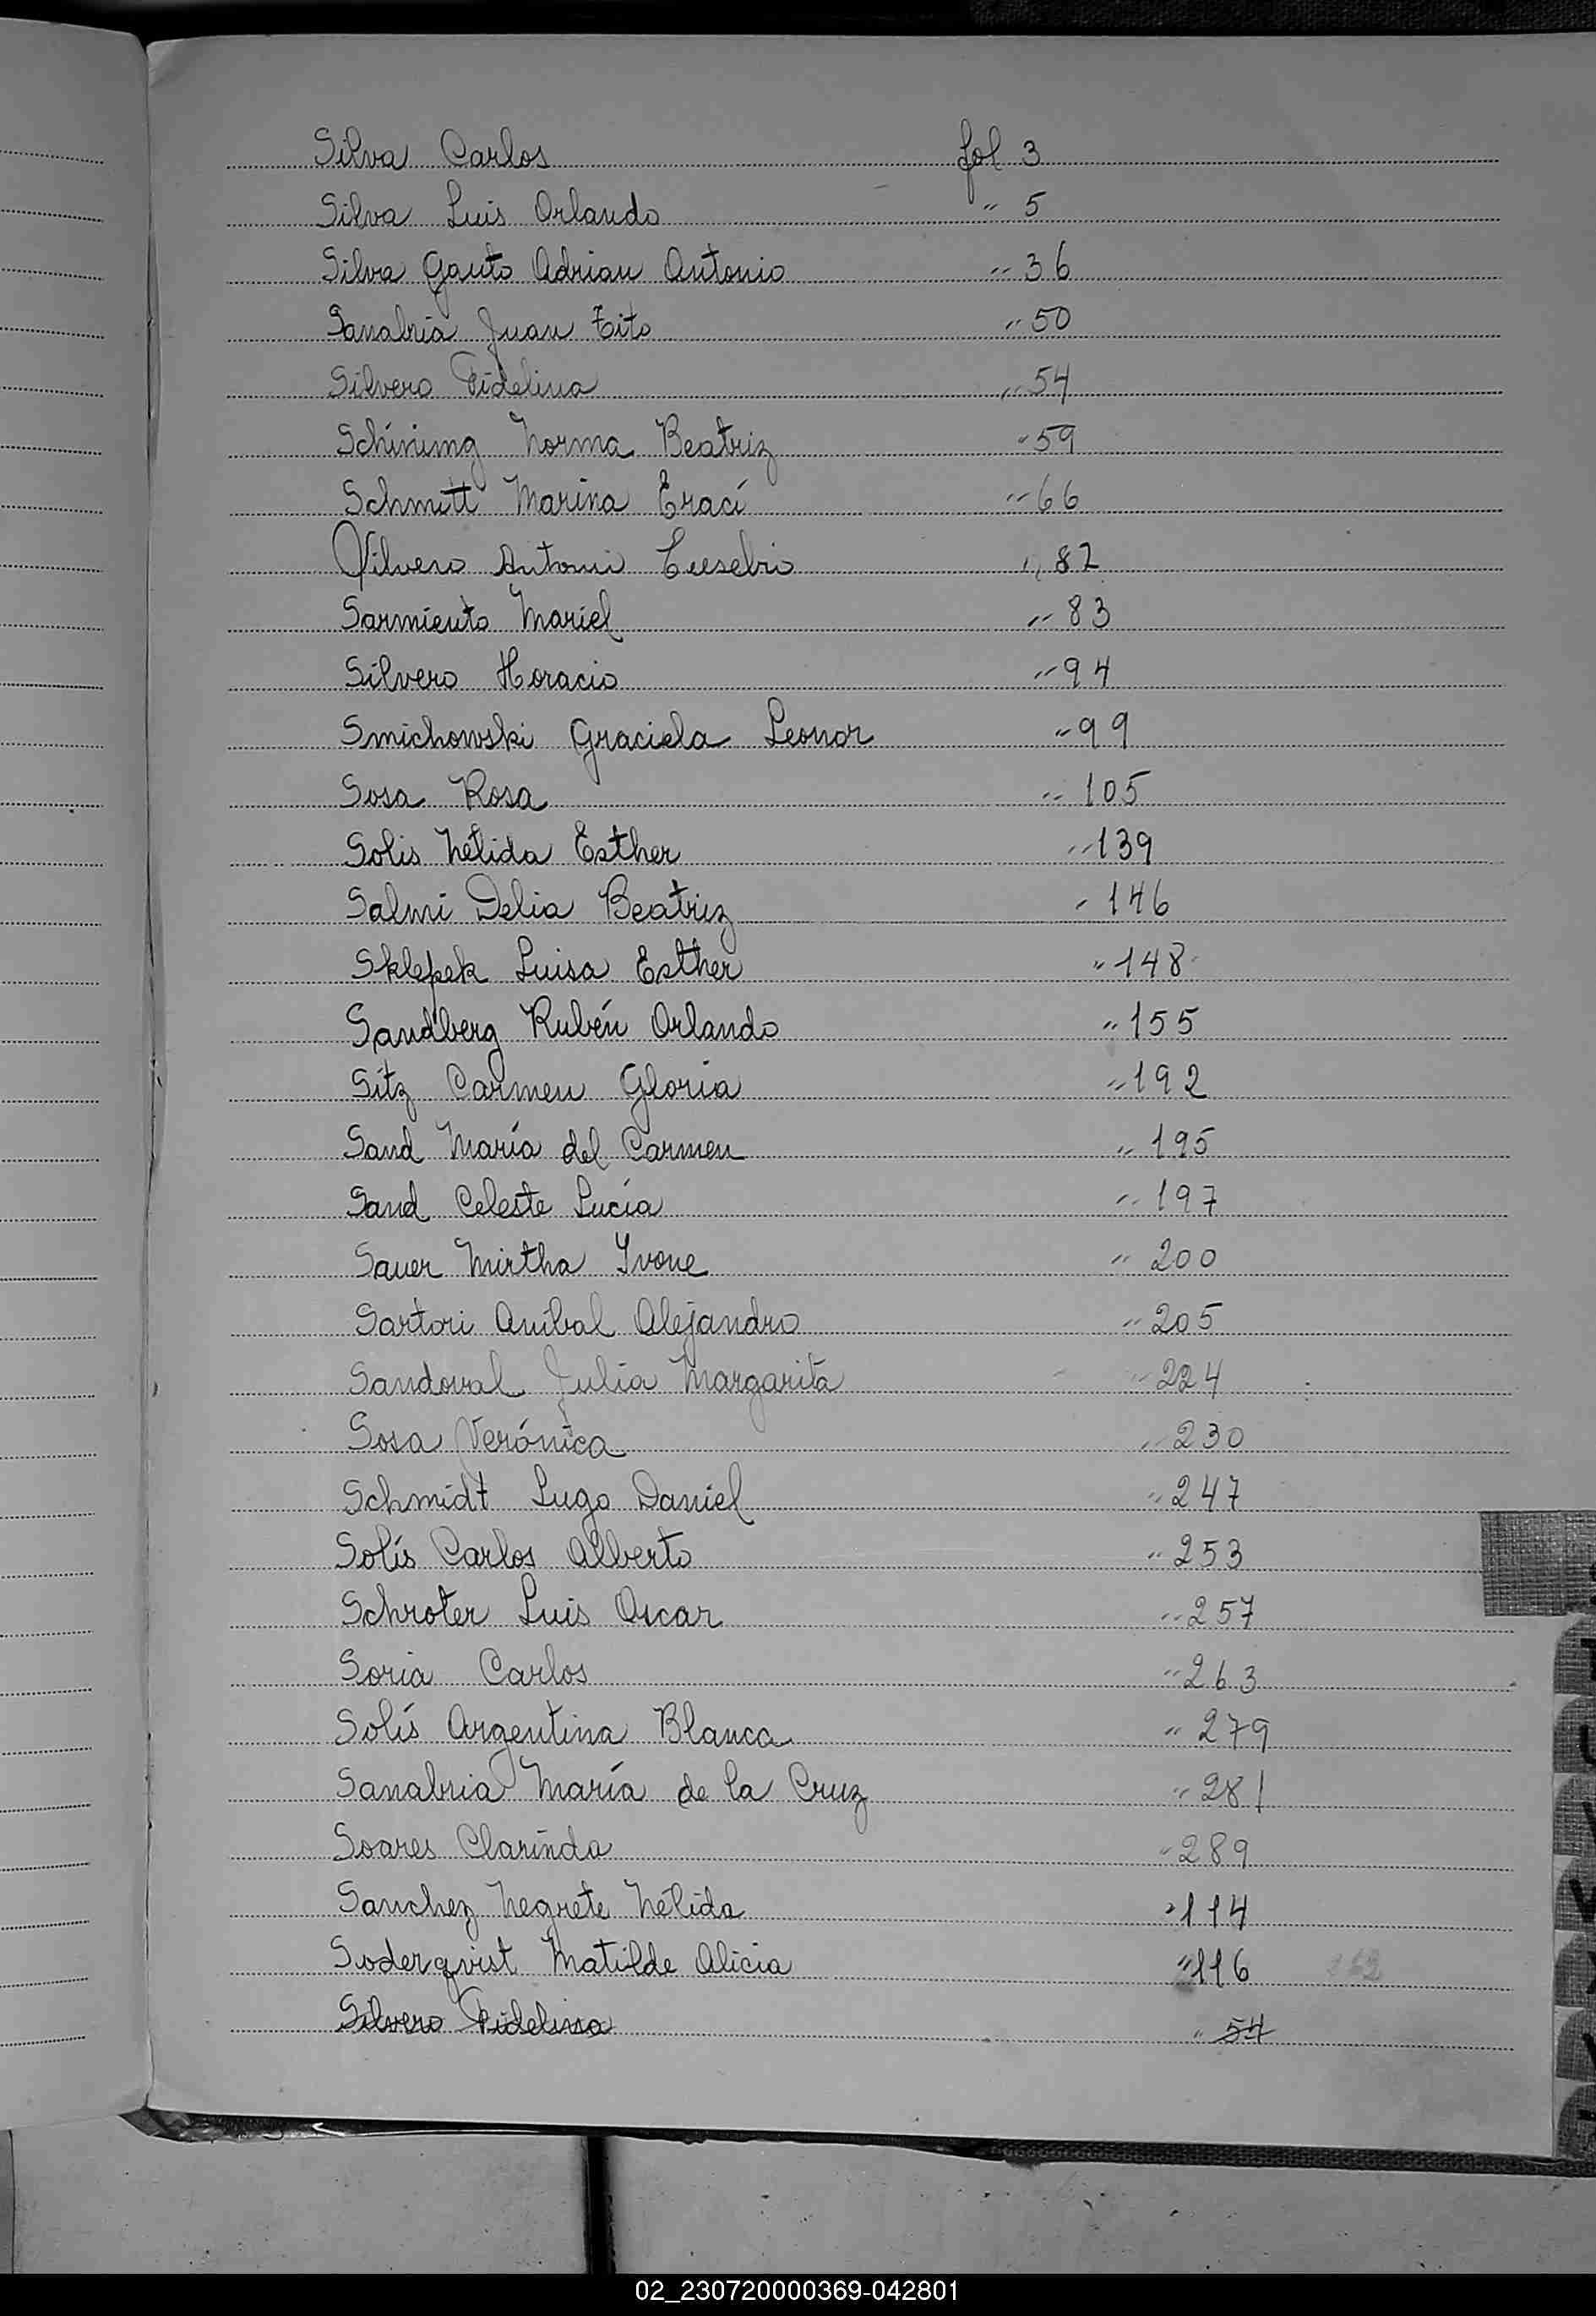 Silva Carlos fol 3
Silva Luis Orlando " 5
Silva Gauto Adrian Antonio " 36
Sanabria Juan Tito " 50
Silvero Fidelina " 54
Norma Beatriz " 59
Schmitt Marina Eraci " 66
Silvero Antonio Eusebio " 82
Sarmiento Mariel " 83
Silvero Horacio " 94
Smichowski Graciela Leonor " 99
Sosa Rosa " 105
Solis Nélida Esther " 139
Salmi Delia Beatriz " 146
Sklepek Luisa Esther " 148
Sandberg Rubén Orlando " 155
Sitz Carmen Gloria " 192
Sand María del Carmen " 195
Sand Celeste Lucía " 197
Sauer Mirtha Yvone " 200
Sartori Anibal Alejandro " 205
Sandoval Julia Margarita " 224
Sosa Verónica " 230
Schmidt Lugo Daniel " 247
Solís Carlos Alberto " 253
Schroter Luis Oscar " 257
Soria Carlos " 263
Solís Argentina Blanca " 279
Sanabria María de la Cruz " 281
Soares Clarinda " 289
Sanchez Negrete Nélida " 114
Soderqvist Matilde Alicia " 116
Silvero Fidelina " 54
02_230720000369-042801